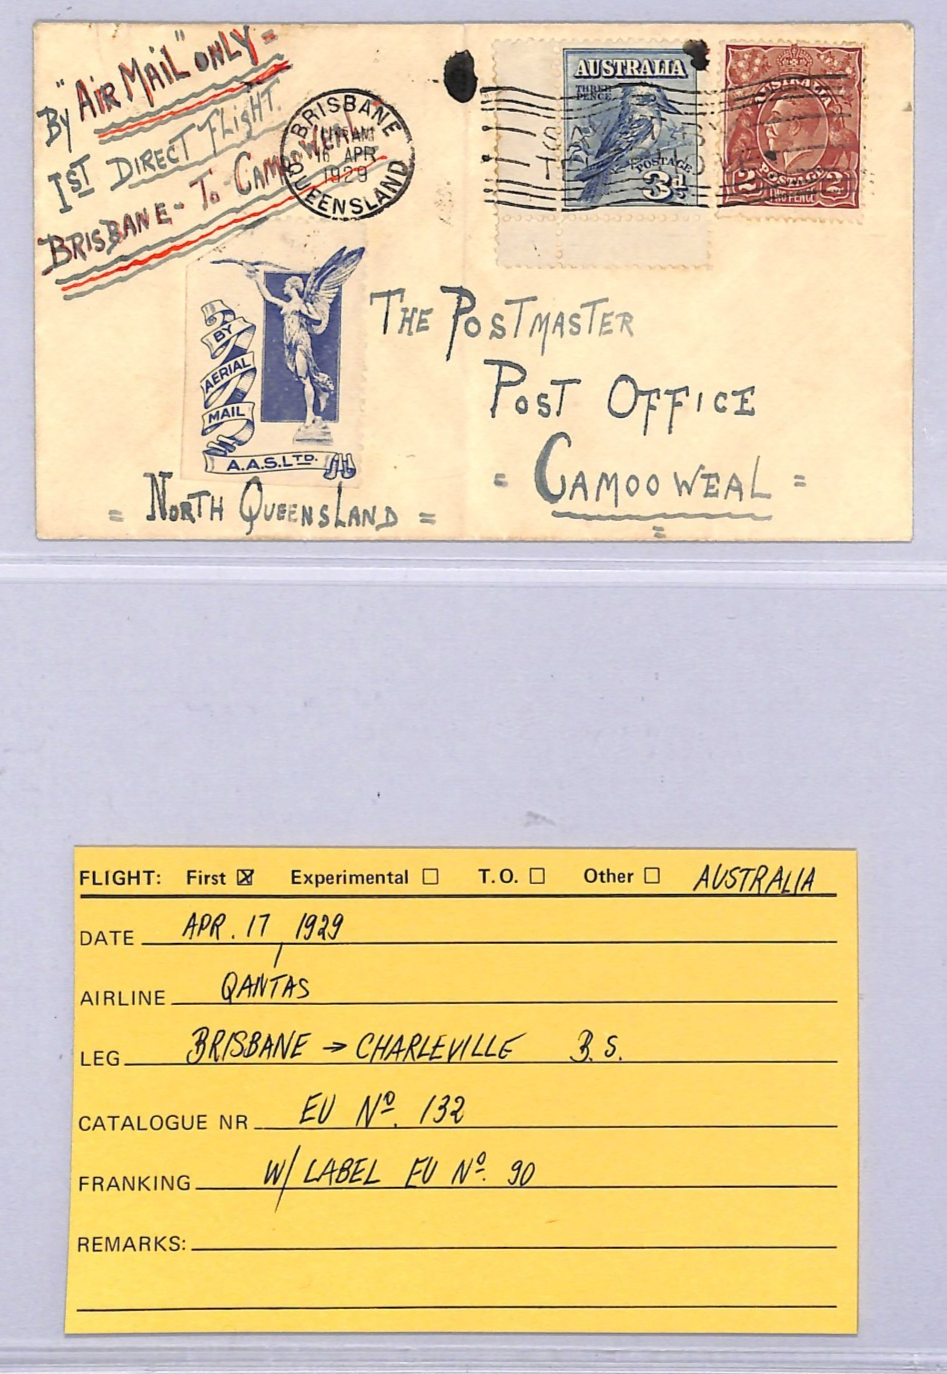 By "AIR MAIL" ONLY =
1ST DIRECT FLIGHT.
BRISBANE - TO - CAMOOWEAL
BRISBANE
AM
16 APR
1929
QUEENSLAND
AUSTRALIA
THREE PENCE
POSTAGE
3D
AUSTRALIA
POSTAGE
2 TWO PENCE 2
BY
AERIAL
MAIL
A.A.S.LTD.
THE POSTMASTER
POST OFFICE
= CAMOOWEAL =
= NORTH QUEENSLAND =
FLIGHT: First ☒ Experimental ☐ T.O. ☐ Other ☐ AUSTRALIA
DATE APR. 17, 1929
AIRLINE QANTAS
LEG BRISBANE → CHARLEVILLE B.S.
CATALOGUE NR EU Nº. 132
FRANKING W/ LABEL EU Nº. 90
REMARKS: